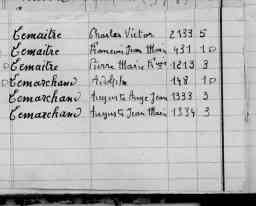 Lemaitre Charles Victor 2133 5
Lemaitre Francois Jean Marie 431 1D
D Lemaitre Pierre Marie 1213 3
D Lemarchand Adolphe 148 1D
Lemarchand Auguste Ange Jean 1333 3
Lemarchand Auguste Jean Marie 1334 3